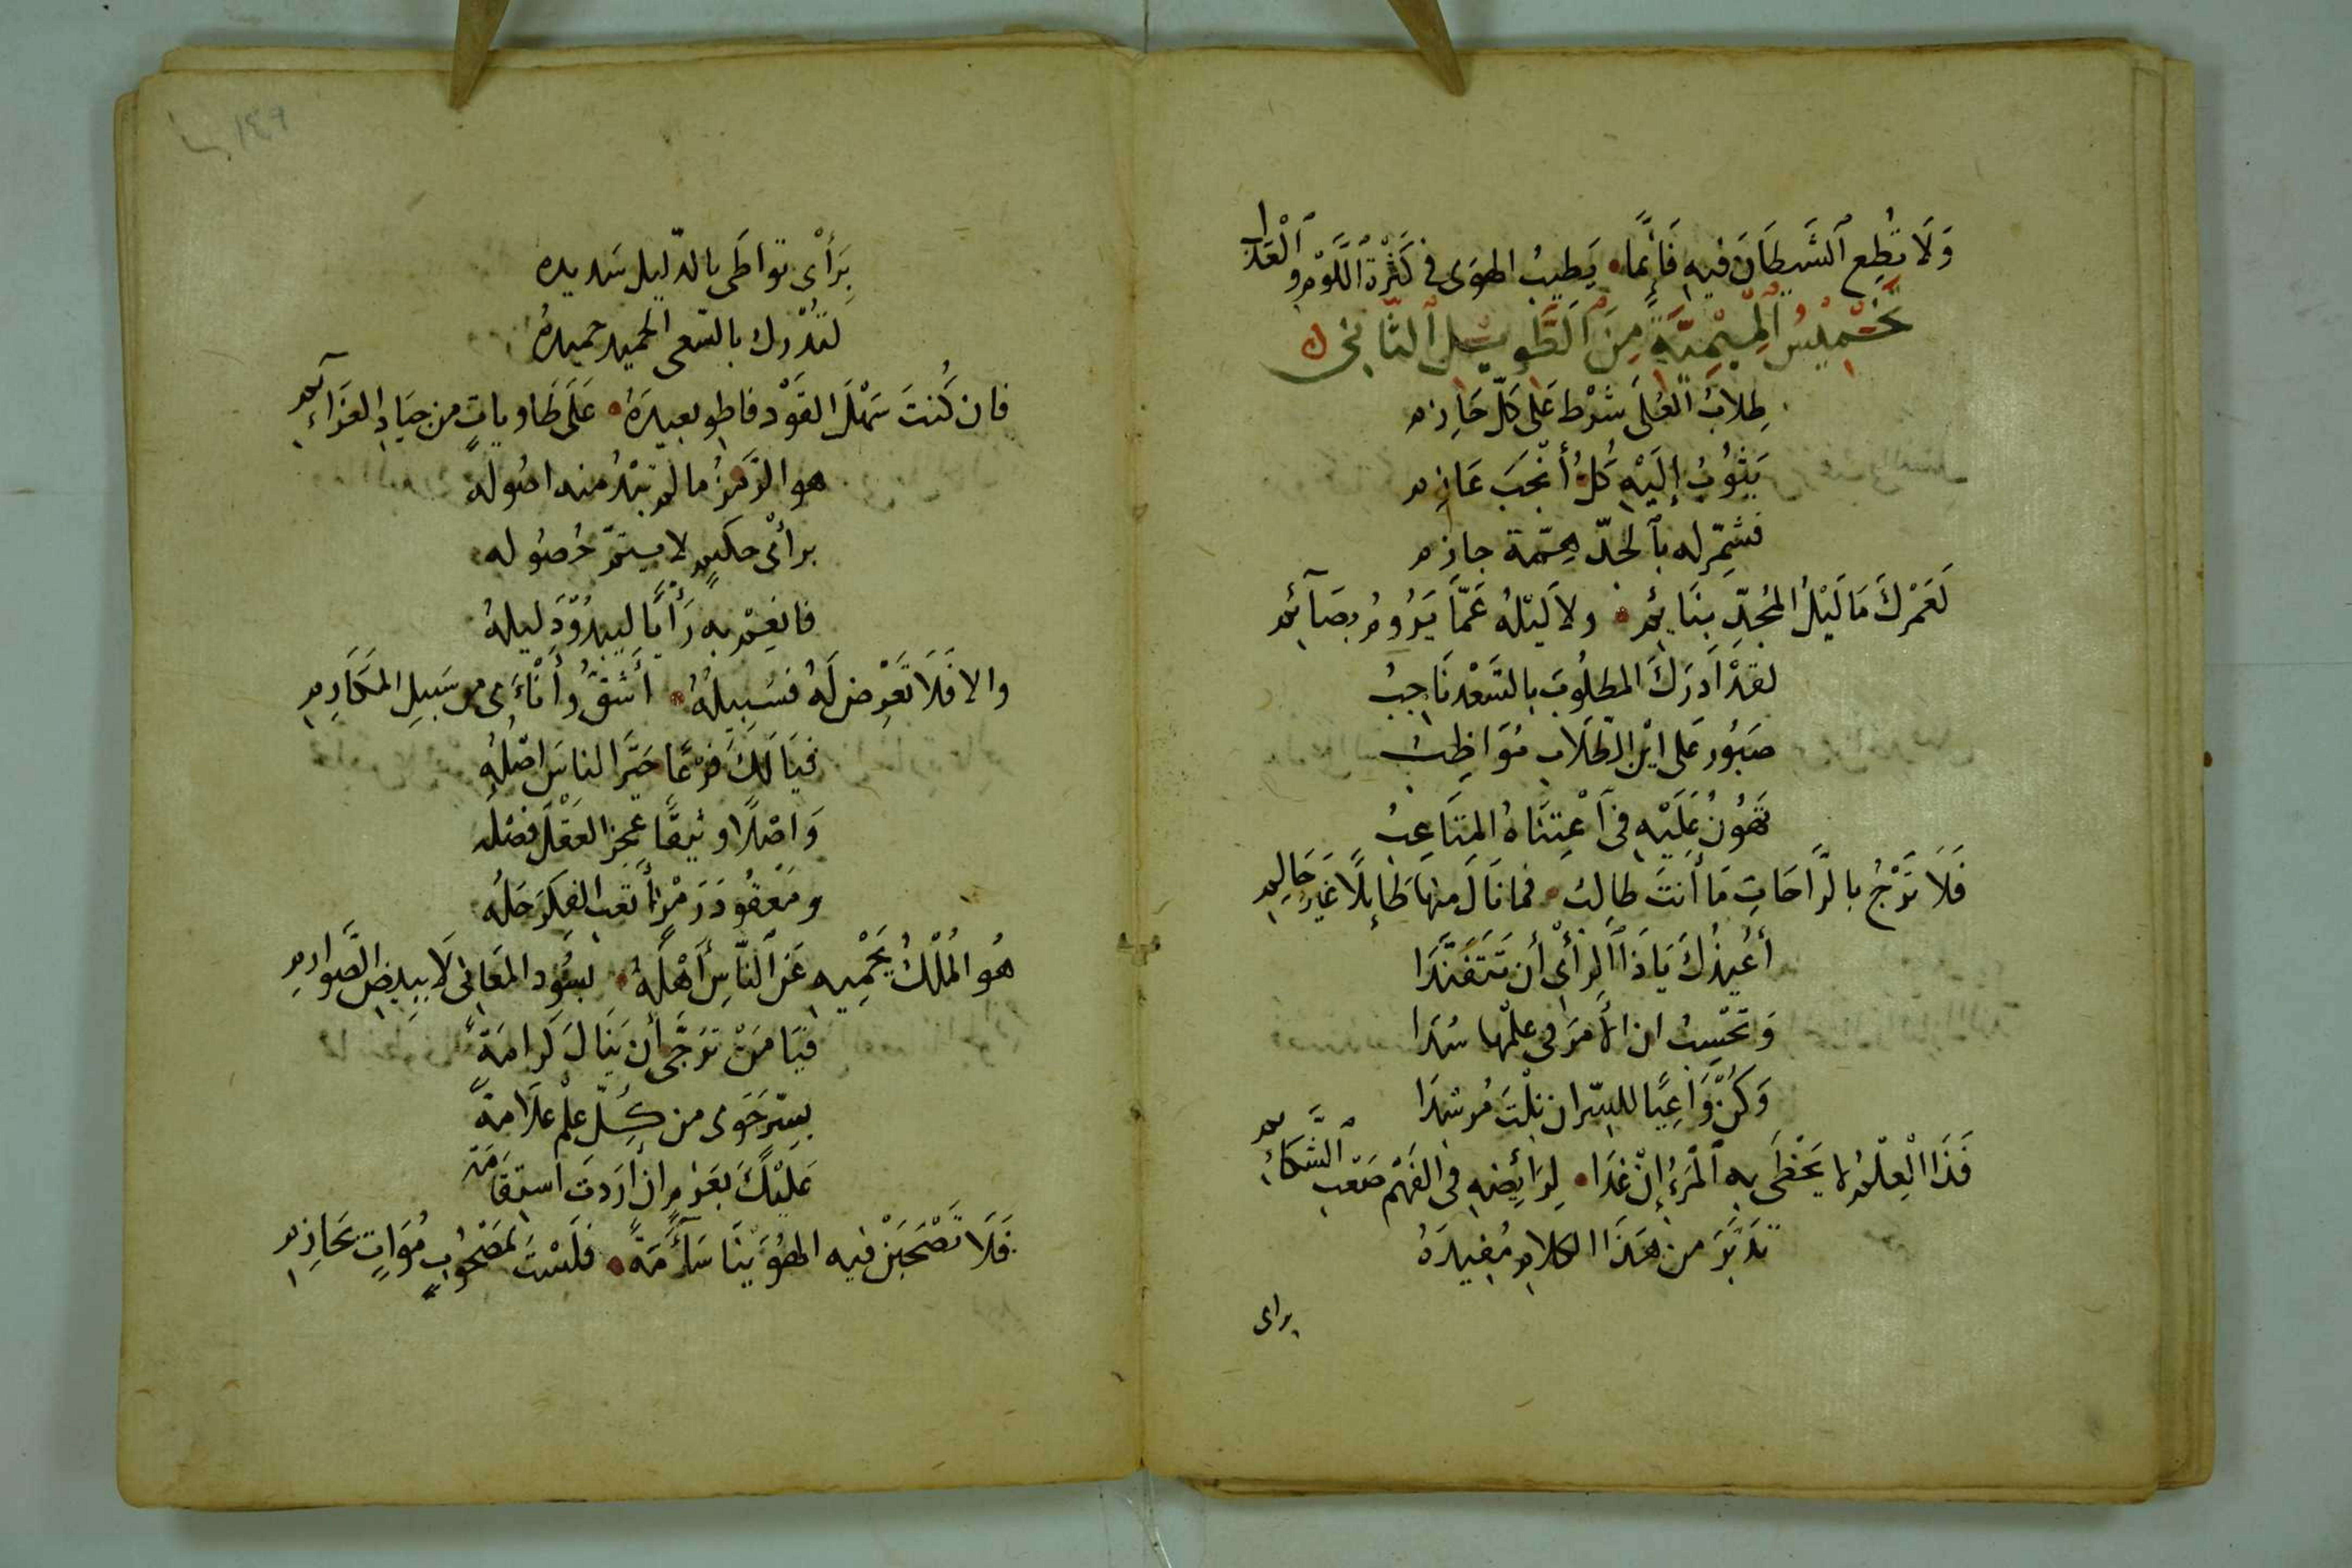 وَلَا تُطِعِ ٱلشَّيطَانَ فيهِ فَإِنَّمَا • يَطِيبُ الهوَى في كَثْرَةِ اللَّوْمِ وٱلْعَذْلِ
تَخْمِيْسُ ٱلْمِيْمِيَّةِ مِنَ ٱلطَّوِيْلِ ٱلثَّانِي
طِلَابُ العُلَى شَرْط عَلَى كلّ حَازِم
يَثُوبُ إِلَيْهِ كُلُّ أَنْجَبَ عَازِم
فشمّر له بٱلجدّ همّة جازم
لَعَمْرُكَ مَا لَيْلُ المُجِدّ بِنَائِمِ • ولا لَيْلُهُ عَمَّا يَرُومُ بِصَآئِمِ
لقدْ أَدرَكَ المطلُوبَ بالسَّعْد نَاجِبُ
صَبُور عَلى أَيْن الطّلَابِ مُوَاظِبُ
تَهُونُ عَلَيْهِ في ٱعْتِنَاهُ المتَاعِبُ
فَلَا تَرْجُ بالرَّاحَاتِ مَا أَنتَ طالِبُ • فما نَالَ منها طَائِلًا غَيرُ حَالِمِ
أُعِيذُكَ يَاذَا ٱلرأْيِ أَن تَتَفَنَّدَا
وَتَحْسِبُ ان الأَمرَ في علمْها سُدَا
وَكُنْ وَاعِيًا للسّر ان نِلْتَ مُرشدَا
فَذَا الْعِلْمُ لا يَحْظَى به ٱلْمَرْءُ إِنْ غَدَا • لِرَائِضِهِ في الفَهْمِ صَعْبَ ٱلشَّكَائِمِ
تدَبَّرَ من هَذَا الكلامِ مُفِيدَهُ
براى
١٤٩
بِرَأْىٍ تواطَى بالدّليل سَديده
لتُدْرك بالسّعي الحميد حميدهُ
فان كُنتَ سَهْلَ القَوْد فاطو بعيدَهُ • عَلَى طَاوياتٍ من جيَادِ العَزَآئِمِ
هو الرّمزُ ما لم تبْدُ منه اصُوله
برأْى حكيمٍ لا يتمّ حُصُوله
فانعِمْ به رَأْيًا ليبدُوْ دَليلهُ
والا فَلَا تَعْرِض لَهُ فسَبِيلُهُ • أَشَقُّ وأَنْأَى من سَبِيلِ المكَارِمِ
فيَا لَكَ فَرْعًا حَيَّرَ الناسَ اصْلُهِ
وَاصْلًا وثيقًا عجز العَقْلَ فصْلُه
ومَعْقُودَ رَمْزٍ أَتعَبَ الفكرَ حَلُه
هُو الْمُلْكُ يَحْمِيهِ عَنِ ٱلنّاسِ أَهْلُهُ • بسُودِ المَعَانِي لَا بِبِيضِ الصَّوارِمِ
فيَا مَنْ تَرَجَّى أَن يَنَالَ كَرامَةً
بسِرّ حَوى من كُلّ عِلْمٍ علَامةً
عَلَيْكَ بعَزْمٍ ان أَرَدتَ استِقَامَة
فَلَا تَصْحَبَنْ فيه الهُوَيْنَا سَآمَةً • فَلَسْتَ بمَصْحُوبٍ مُوَاتٍ بحَازِمِ